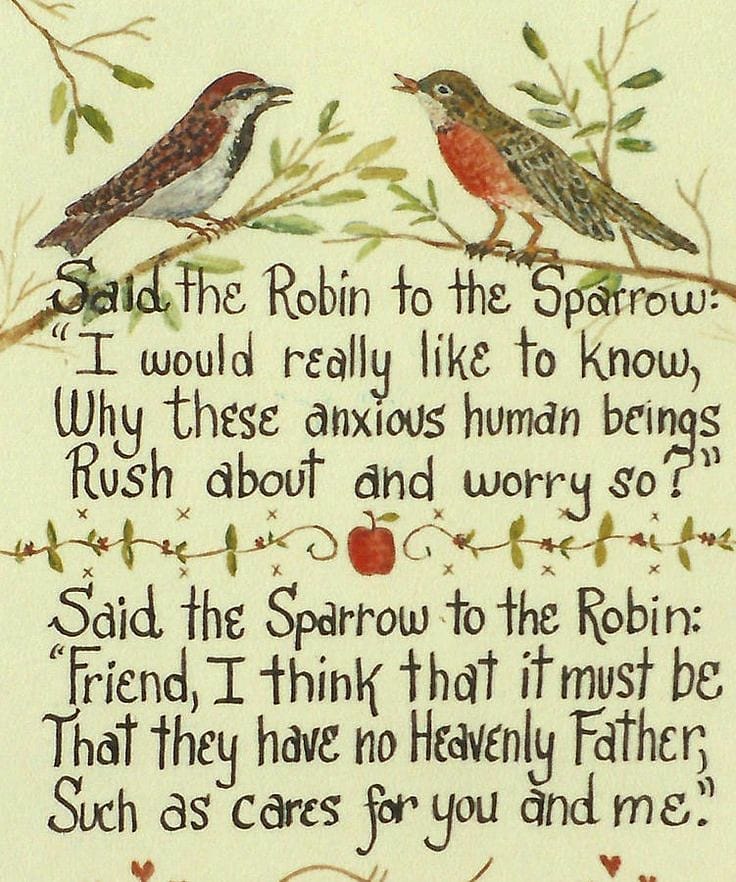 Said the Robin to the Sparrow:
"I would really like to know,
Why these anxious human beings
Rush about and worry so?"
Said the Sparrow to the Robin:
"Friend, I think that it must be
That they have no Heavenly Father,
Such as cares for you and me."